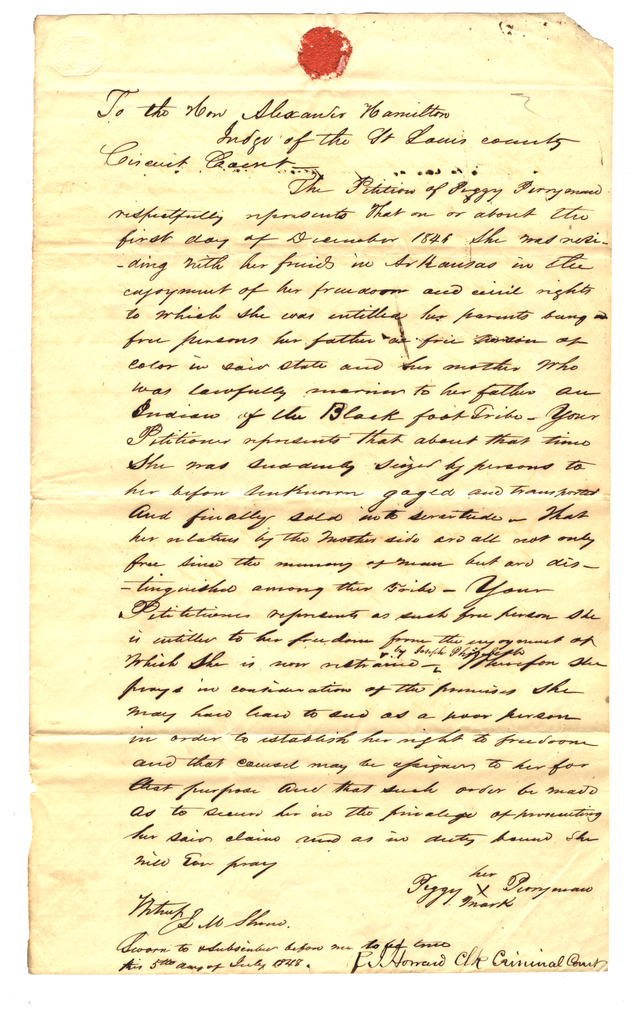 To the Hon Alexander Hamilton
Judge of the St Louis county
Circuit Court
The Petition of Peggy Perryman
respectfully represents that on or about the
first day of December 1846 She was resi-
-ding with her friends in Arkansas in the
enjoyment of her freedom and civil rights
to which she was entitled her parents being
free persons her father a free person of
color in said state and her mother who
was lawfully married to her father an
Indian of the Black foot Tribe - Your
Petitioner represents that about that time
She was suddenly seized by persons to
her before unknown gaged and transported
And finally sold into servitude - That
her relatives by the Mother side are all not only
free since the memory of man but are dis-
-tinguished among their Tribe - Your
Petitioner represents as such free person she
is entitled to her freedom from the enjoyment of
by Joseph
which She is now restrained - Wherefore she
prays in consideration of the premises she
may have leave to sue as a poor person
in order to establish her right to freedom
and that counsel may be assigned to her for
that purpose And that such order be made
as to secure her in the privilege of prosecuting
her said claim and as in duty bound she
will Ever pray
her
Peggy X Perryman
mark
Witness
J M
Sworn to & Subscribed before me
this 5th day of July 1848.
Howard Clk Criminal Court